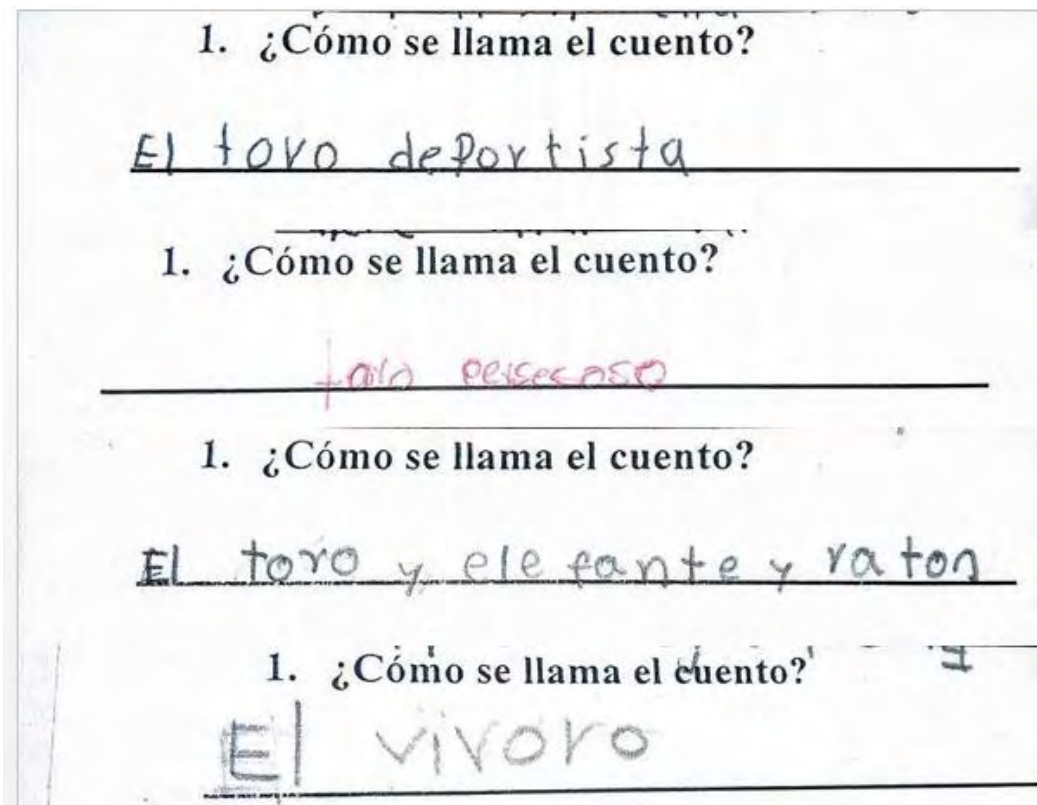 1. ¿Cómo se llama el cuento?
El toro deportista
1. ¿Cómo se llama el cuento?
1. ¿Cómo se llama el cuento?
El toro y elefante y raton
1. ¿Cómo se llama el cuento?
El vivoro